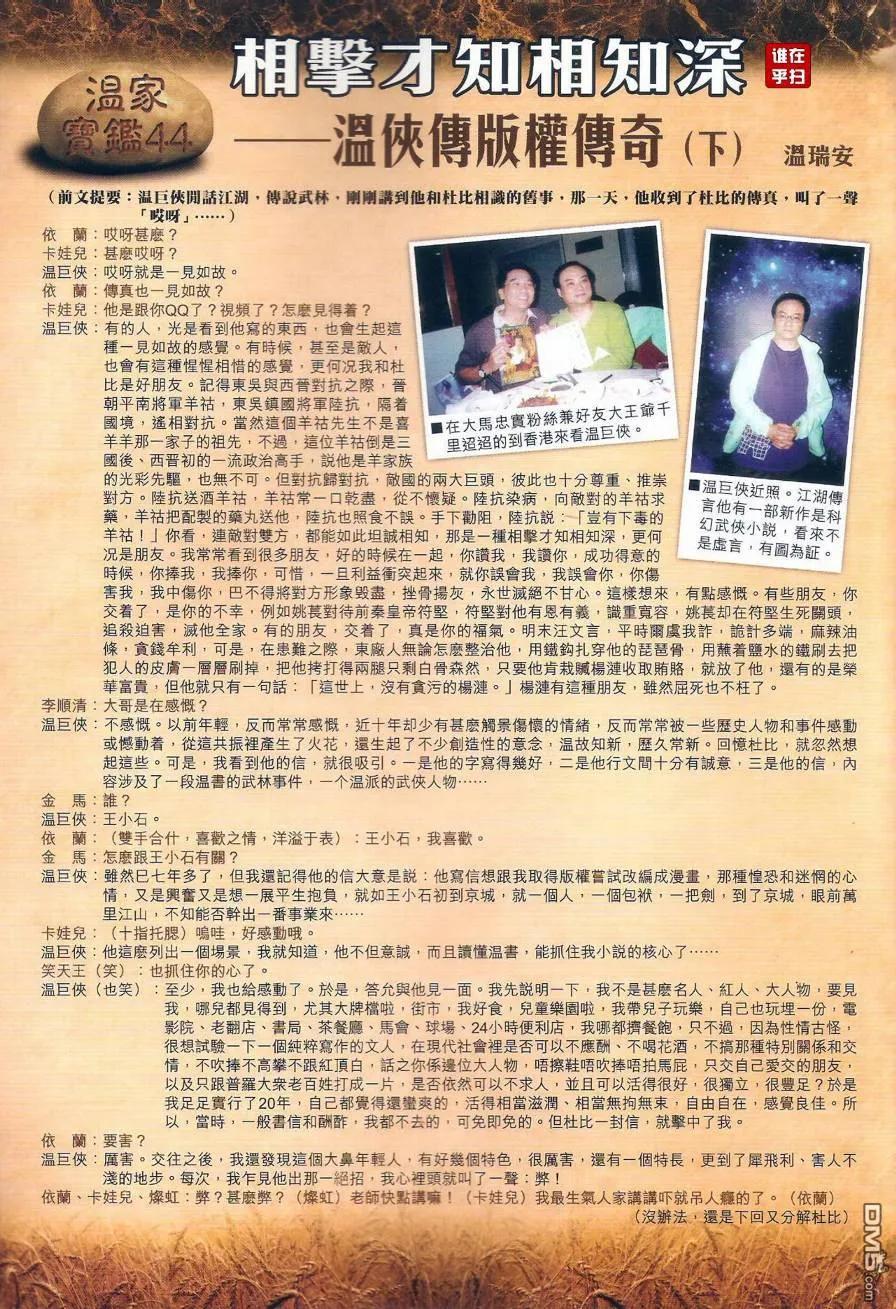 相擊才知相知深
谁在
乎扫
溫家
寶鑑44
——溫俠傳版權傳奇（下）
溫瑞安
（前文提要：温巨俠閒話江湖，傳說武林，剛剛講到他和杜比相識的舊事，那一天，他收到了杜比的傳真，叫了一聲
「哎呀」……）
依　蘭：哎呀甚麼？
卡娃兒：甚麼哎呀？
温巨俠：哎呀就是一見如故。
依　蘭：傳真也一見如故？
卡娃兒：他是跟你QQ了？視頻了？怎麼見得着？
温巨俠：有的人，光是看到他寫的東西，也會生起這
種一見如故的感覺。有時候，甚至是敵人，
也會有這種惺惺相惜的感覺，更何況我和杜
比是好朋友。記得東吳與西晉對抗之際，晉
朝平南將軍羊祜，東吳鎮國將軍陸抗，隔着
國境，遙相對抗。當然這個羊祜先生不是喜
羊羊那一家子的祖先，不過，這位羊祜倒是三
國後、西晉初的一流政治高手，說他是羊家族
的光彩先驅，也無不可。但對抗歸對抗，敵國的兩大巨頭，彼此也十分尊重、推崇
對方。陸抗送酒羊祜，羊祜常一口乾盡，從不懷疑。陸抗染病，向敵對的羊祜求
藥，羊祜把配製的藥丸送他，陸抗也照食不誤。手下勸阻，陸抗説：「豈有下毒的
羊祜！」你看，連敵對雙方，都能如此坦誠相知，那是一種相擊才知相知深，更何
況是朋友。我常常看到很多朋友，好的時候在一起，你讚我，我讚你，成功得意的
時候，你捧我，我捧你，可惜，一旦利益衝突起來，就你誤會我，我誤會你，你傷
害我，我中傷你，巴不得將對方形象毀盡，挫骨揚灰，永世滅絕不甘心。這樣想來，有點感慨。有些朋友，你
交着了，是你的不幸，例如姚萇對待前秦皇帝符堅，符堅對他有恩有義，識重寬容，姚萇却在符堅生死關頭，
追殺迫害，滅他全家。有的朋友，交着了，真是你的福氣。明末汪文言，平時爾虞我詐，詭計多端，麻辣油
條，貪錢牟利，可是，在患難之際，東廠人無論怎麽整治他，用鐵鈎扎穿他的琵琶骨，用蘸着鹽水的鐵刷去把
犯人的皮膚一層層刷掉，把他拷打得兩腿只剩白骨森然，只要他肯栽贓楊漣收取賄賂，就放了他，還有的是榮
華富貴，但他就只有一句話：「這世上，沒有貪污的楊漣。」楊漣有這種朋友，雖然屈死也不枉了。
李順清：大哥是在感慨？
温巨俠：不感慨。以前年輕，反而常常感慨，近十年却少有甚麽觸景傷懷的情緒，反而常常被一些歷史人物和事件感動
或憾動着，從這共振裡產生了火花，還生起了不少創造性的意念，温故知新，歷久常新。回憶杜比，就忽然想
起這些。可是，我看到他的信，就很吸引。一是他的字寫得幾好，二是他行文間十分有誠意，三是他的信，內
容涉及了一段温書的武林事件，一个温派的武俠人物……
金　馬：誰？
温巨俠：王小石。
依　蘭：（雙手合什，喜歡之情，洋溢于表）：王小石，我喜歡。
金　馬：怎麽跟王小石有關？
温巨俠：雖然已七年多了，但我還記得他的信大意是説：他寫信想跟我取得版權嘗試改編成漫畫，那種惶恐和迷惘的心
情，又是興奮又是想一展平生抱負，就如王小石初到京城，就一個人，一個包袱，一把劍，到了京城，眼前萬
里江山，不知能否幹出一番事業來……
卡娃兒：（十指托腮）嗚哇，好感動哦。
温巨俠：他這麽列出一個場景，我就知道，他不但意誠，而且讀懂温書，能抓住我小説的核心了……
笑天王（笑）：也抓住你的心了。
温巨俠（也笑）：至少，我也給感動了。於是，答允與他見一面。我先説明一下，我不是甚麽名人、紅人、大人物，要見
我，哪兒都見得到，尤其大牌檔啦，街市，我好食，兒童樂園啦，我帶兒子玩樂，自己也玩埋一份，電
影院、老翻店、書局、茶餐廳、馬會、球場、24小時便利店，我哪都擠餐飽，只不過，因為性情古怪，
很想試驗一下一個純粹寫作的文人，在現代社會裡是否可以不應酬、不喝花酒，不搞那種特別關係和交
情，不吹捧不高攀不跟紅頂白，話之你係邊位大人物，唔擦鞋唔吹捧唔拍馬屁，只交自己愛交的朋友，
以及只跟普羅大衆老百姓打成一片，是否依然可以不求人，並且可以活得很好，很獨立，很豐足？於是
我足足實行了20年，自己都覺得還蠻爽的，活得相當滋潤、相當無拘無束，自由自在，感覺良佳。所
以，當時，一般書信和酬酢，我都不去的，可免即免的。但杜比一封信，就擊中了我。
依　蘭：要害？
温巨俠：厲害。交往之後，我還發現這個大鼻年輕人，有好幾個特色，很厲害，還有一個特長，更到了犀飛利、害人不
淺的地步。每次，我乍見他出那一絕招，我心裡頭就叫了一聲：弊！
依蘭、卡娃兒、燦虹：弊？甚麽弊？（燦虹）老師快點講嘛！（卡娃兒）我最生氣人家講講吓就吊人癮的了。（依蘭）
（沒辦法，還是下回又分解杜比）
■在大馬忠實粉絲兼好友大王爺千
里迢迢的到香港來看温巨俠。
■温巨俠近照。江湖傳
言他有一部新作是科
幻武俠小説，看來不
是虛言，有圖為証。
DM5.com